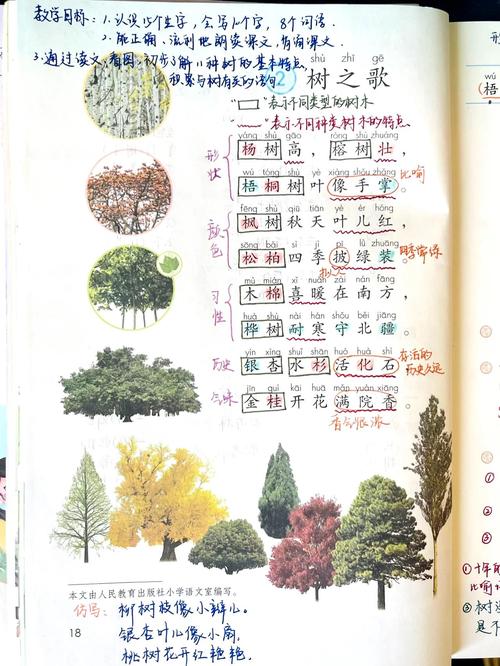 教学目标：1.认识15个生字，会写10个字，8个词语。
2.能正确、流利地朗读课文，背诵课文。
3.通过读文、看图，初步了解11种树的基本特点，
积累与树有关的语句。
shù zhī gē
2 树之歌
“□”表示不同类型的树木
“﹏﹏”表示不同种类树木的特点
形状
yáng shù gāo róng shù zhuàng
杨树高，榕树壮，
wú tóng shù yè xiàng shǒu zhǎng
梧桐树叶像手掌。
比喻
颜色
fēng shù qiū tiān yè ér hóng
枫树秋天叶儿红，
sōng bǎi sì jì pī lǜ zhuāng
松柏四季披绿装。
四季常绿
拟人
习性
mù mián xǐ nuǎn zài nán fāng
木棉喜暖在南方，
huà shù nài hán shǒu běi jiāng
桦树耐寒守北疆。
历史
yín xìng shuǐ shān huó huà shí
银杏水杉活化石，
存活的
历史久远
气味
jīn guì kāi huā mǎn yuàn xiāng
金桂开花满院香。
香气很浓
本文由人民教育出版社小学语文室编写。
仿写：柳树枝像小辫儿。
银杏叶儿像小扇，
桃树花开红艳艳。
18
wú
梧
①十年的
比喻
③树
是不